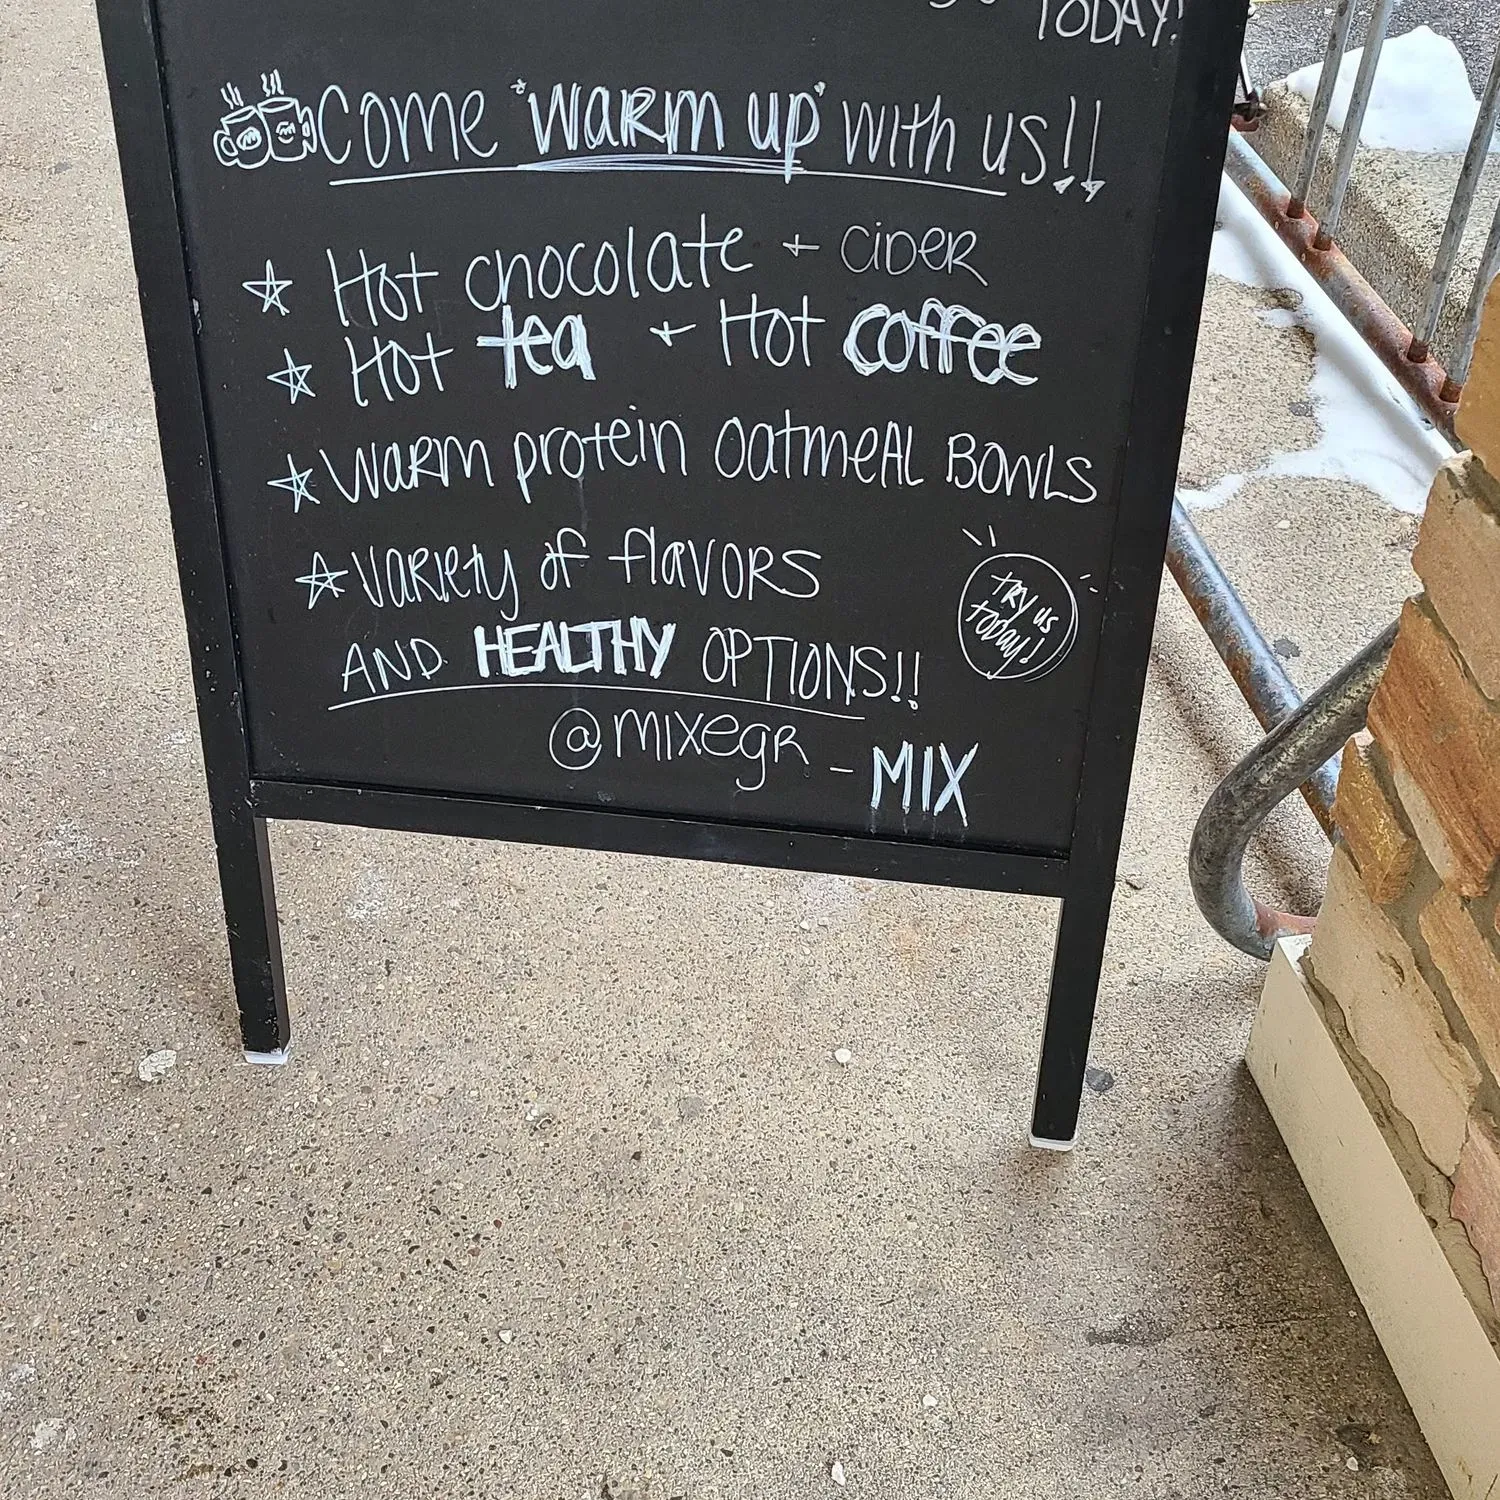 TODAY!
COME "WARM UP" WITH US!!
☆ Hot chocolate + CIDER
☆ Hot tea + Hot coffee
☆ WARM protein oatmeAL BOWLS
☆ VARIETY of flavORS
AND HEALTHY OPTIONS!!
TRY us
today!
@MIXEGR - MIX